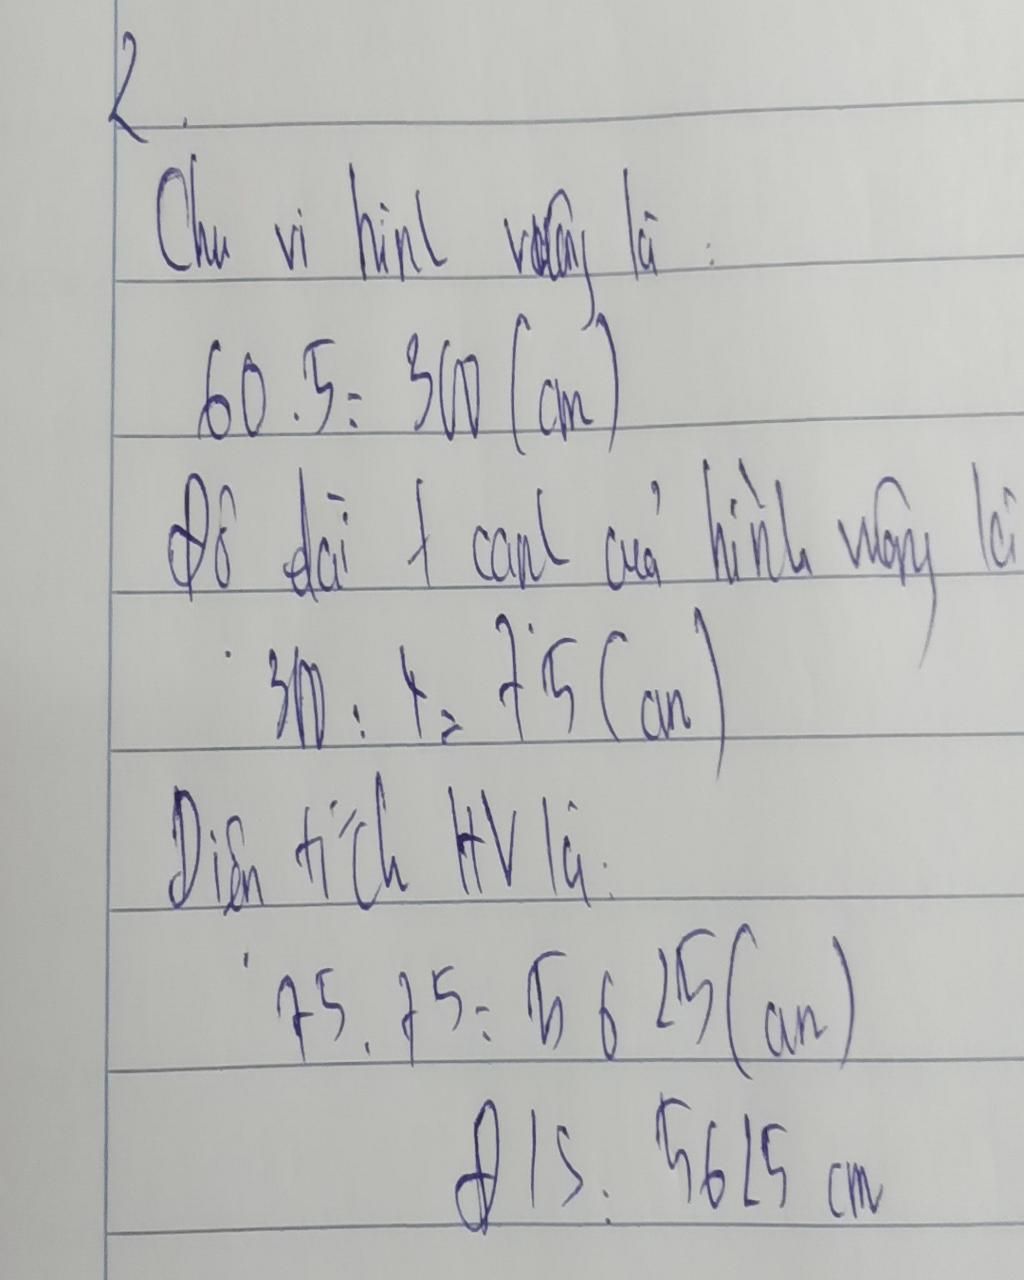 2.
Chu vi hình vuông là:
60.5= 300 (cm)
Độ dài 1 cạnh của hình vuông là
300: 4= 75 (cm)
Diện tích HV là:
75.75= 5625 (cm)
Đ/S: 5625 cm